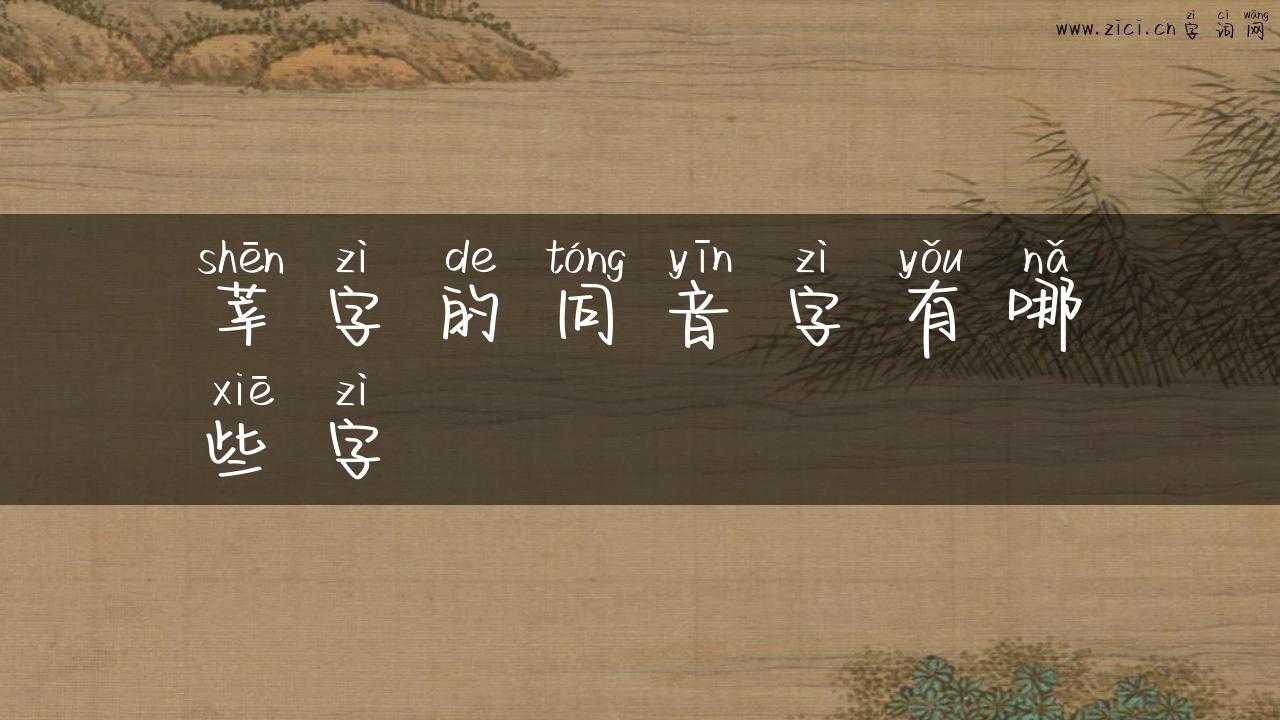 zì cí wǎng
www.zici.cn 字 词 网
shēn zì de tóng yīn zì yǒu nǎ
莘 字 的 同 音 字 有 哪
xiē zì
些 字